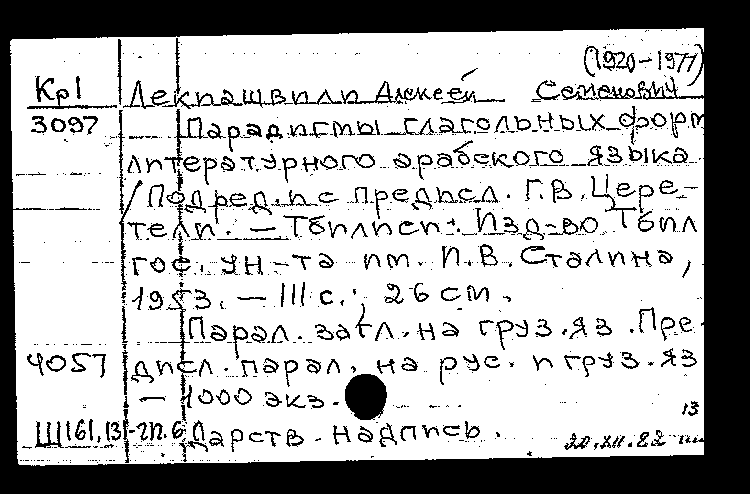 (1920-1971)
Кр1 Лекиашвили Алексей Семенович
3097 Парадигмы глагольных форм
литературного арабского языка
/ Под ред. и с предисл. Г.В. Цере-
тели. — Тбилиси: Изд-во Тбил
гос. ун-та им. И.В. Сталина,
1953. — 111 с.; 26 см.
Парал. загл. на груз. яз. Пре-
4057 дисл. парал. на рус. и груз. яз
— 1000 экз.
13
Ш161,131-2п.6 Дарств. надпись.